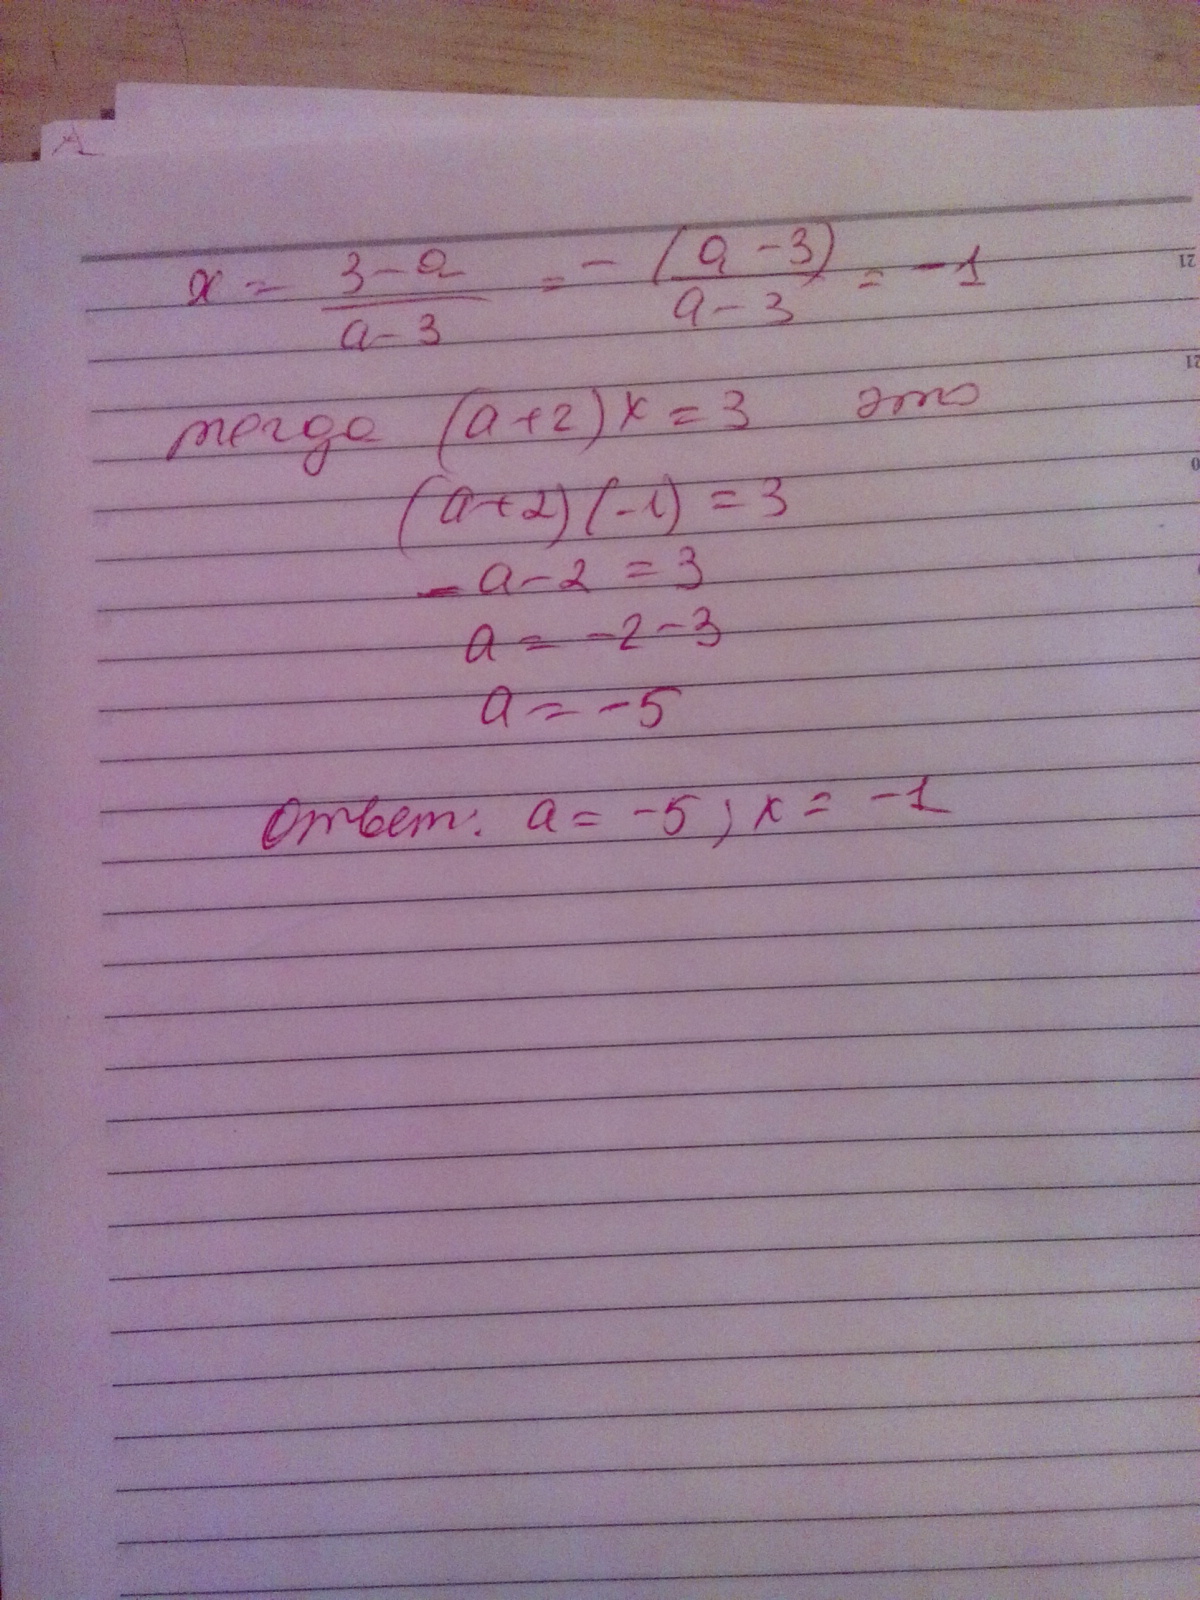 А
x = 3-a / a-3 = - (a-3) / a-3 = -1
тогда (a+2)x = 3 это
(a+2)(-1) = 3
-a-2 = 3
a = -2-3
a = -5
Ответ: a = -5; x = -1
21
21
0